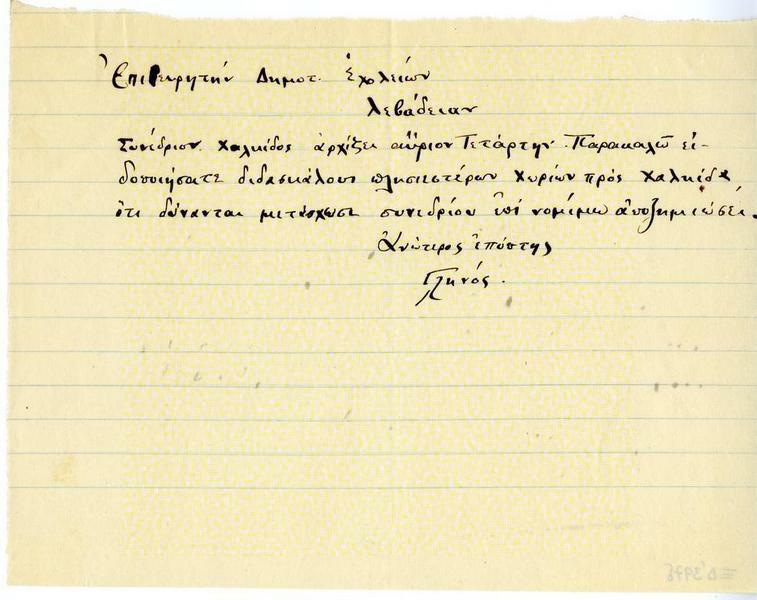 Ἐπιθεωρητὴν Δημοτ. Σχολείων
Λεβάδειαν
Συνέδριον Χαλκίδος ἀρχίζει αὔριον Τετάρτην. Παρακαλῶ εἰ-
δοποιήσατε διδασκάλους πλησιεστέρων χωρίων πρὸς Χαλκίδα
ὅτι δύνανται μετάσχωσι συνεδρίου ἐπὶ νομίμῳ ἀποζημιώσει.
Ἀνώτερος ἐπόπτης
Γληνός.